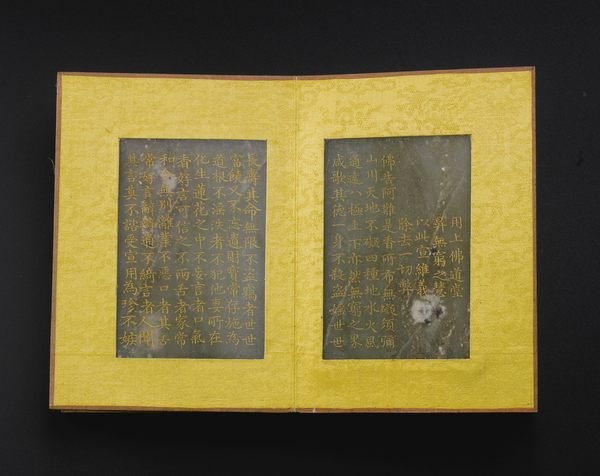 用上佛道堂
昇無窮之慧
以此宣維義
除去一切弊
佛告阿難是香所布無礙須彌
山川天地不礙四種地水火風
通達八極上下亦然無窮之界
咸歌其德一身不殺盜婬世世
長壽其命無限不盜竊者世世
富饒又不忘遺財寶常存施為
道根不淫泆者不犯他妻所在
化生蓮花之中不妄言者口氣
香好言可信之不兩舌者家常
和合無別離業不惡口者其舌
常好言辭辯通不綺言者人聞
其言莫不諮受宣用為珍不嫉